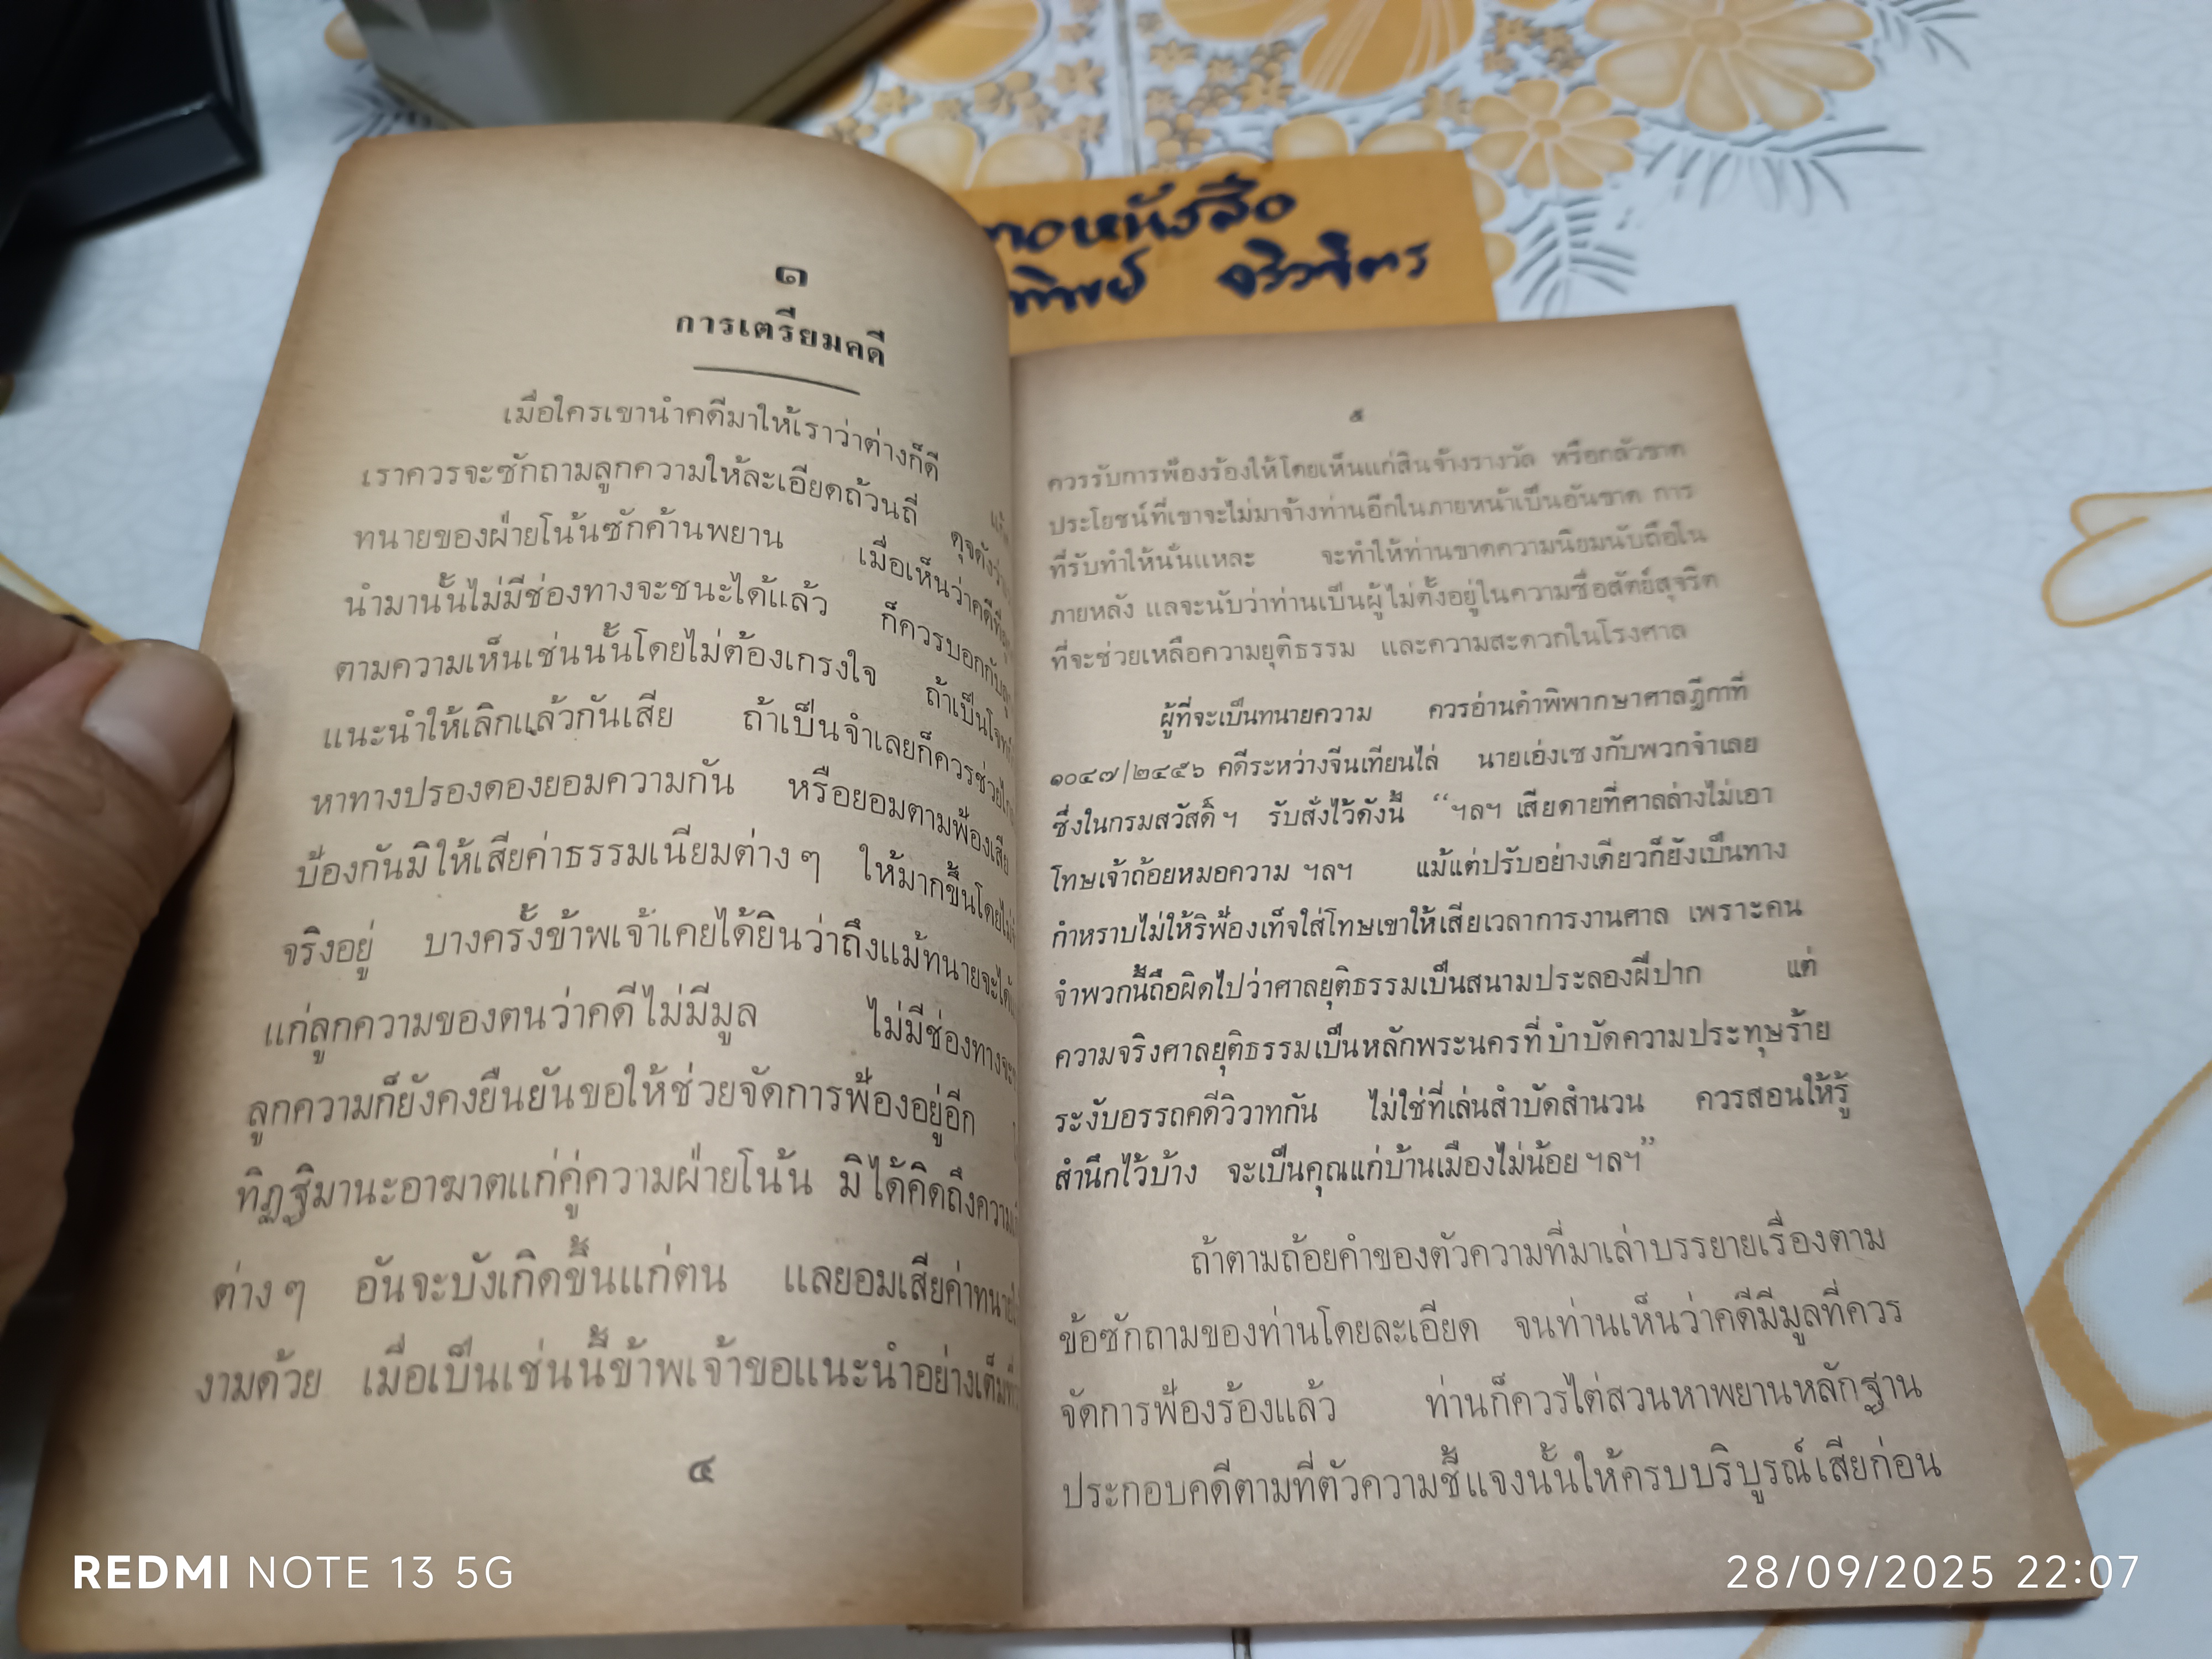 ๑
การเตรียมคดี
เมื่อใครเขานำคดีมาให้เราว่าต่างก็ดี
เราควรจะซักถามลูกความให้ละเอียดถ้วนถี่ ดุจดัง
ทนายของฝ่ายโน้นซักค้านพยาน เมื่อเห็นว่าคดีที่
นำมานั้นไม่มีช่องทางจะชนะได้แล้ว ก็ควรบอกกับ
ตามความเห็นเช่นนั้นโดยไม่ต้องเกรงใจ ถ้าเป็น
แนะนำให้เลิกแล้วกันเสีย ถ้าเป็นจำเลยก็ควรช่วย
หาทางปรองดองยอมความกัน หรือยอมตามฟ้องเสีย
ป้องกันมิให้เสียค่าธรรมเนียมต่าง ๆ ให้มากขึ้นโดย
จริงอยู่ บางครั้งข้าพเจ้าเคยได้ยินว่าถึงแม้ทนายจะได้
แก่ลูกความของตนว่าคดีไม่มีมูล ไม่มีช่องทาง
ลูกความก็ยังคงยืนยันขอให้ช่วยจัดการฟ้องอยู่อีก
ทิฏฐิมานะอาฆาตแก่คู่ความฝ่ายโน้น มิได้คิดถึงความ
ต่าง ๆ อันจะบังเกิดขึ้นแก่ตน แลยอมเสียค่า
งามด้วย เมื่อเป็นเช่นนี้ข้าพเจ้าขอแนะนำอย่างเต็ม
๔
๕
ควรรับการฟ้องร้องให้โดยเห็นแก่สินจ้างรางวัล หรือกลัวขาด
ประโยชน์ที่เขาจะไม่มาจ้างท่านอีกในภายหน้าเป็นอันขาด การ
ที่รับทำให้นั่นแหละ จะทำให้ท่านขาดความนิยมนับถือใน
ภายหลัง แลจะนับว่าท่านเป็นผู้ไม่ตั้งอยู่ในความซื่อสัตย์สุจริต
ที่จะช่วยเหลือความยุติธรรม และความสะดวกในโรงศาล
ผู้ที่จะเป็นทนายความ ควรอ่านคำพิพากษาศาลฎีกาที่
๑๐๔๗/๒๔๕๖ คดีระหว่างจีนเทียนไล่ นายเอ่งเซงกับพวกจำเลย
ซึ่งในกรมสวัสดิ์ ฯ รับสั่งไว้ดังนี้ “ฯลฯ เสียดายที่ศาลล่างไม่เอา
โทษเจ้าถ้อยหมอความ ฯลฯ แม้แต่ปรับอย่างเดียวก็ยังเป็นทาง
กำหราบไม่ให้ริฟ้องเท็จใส่โทษเขาให้เสียเวลาการงานศาล เพราะคน
จำพวกนี้ถือผิดไปว่าศาลยุติธรรมเป็นสนามประลองฝีปาก แต่
ความจริงศาลยุติธรรมเป็นหลักพระนครที่บำบัดความประทุษร้าย
ระงับอรรถคดีวิวาทกัน ไม่ใช่ที่เล่นสำบัดสำนวน ควรสอนให้รู้
สำนึกไว้บ้าง จะเป็นคุณแก่บ้านเมืองไม่น้อย ฯลฯ”
ถ้าตามถ้อยคำของตัวความที่มาเล่าบรรยายเรื่องตาม
ข้อซักถามของท่านโดยละเอียด จนท่านเห็นว่าคดีมีมูลที่ควร
จัดการฟ้องร้องแล้ว ท่านก็ควรไต่สวนหาพยานหลักฐาน
ประกอบคดีตามที่ตัวความชี้แจงนั้นให้ครบบริบูรณ์เสียก่อน
REDMI NOTE 13 5G
28/09/2025 22:07